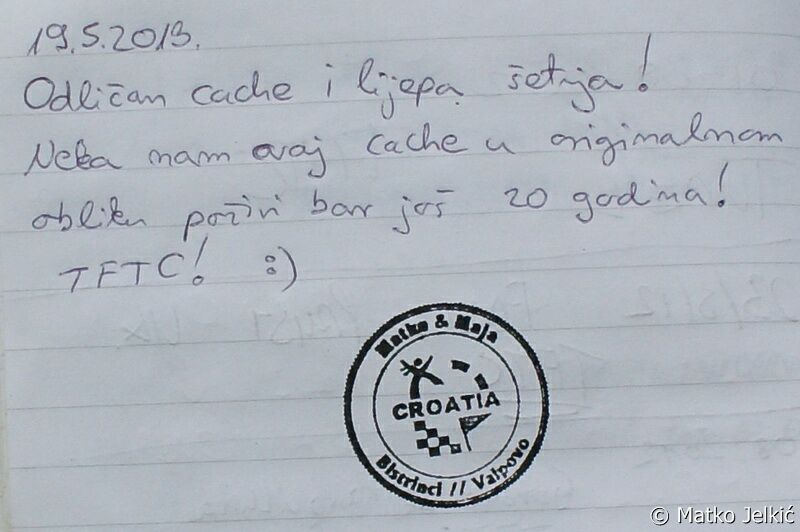 19.5.2013.
Odličan cache i lijepa šetnja!
Neka nam ovaj cache u originalnom
obliku poživi bar još 20 godina!
TFTC! :)
Matko & Maja
CROATIA
Bistrinci // Valpovo
© Matko Jelkić